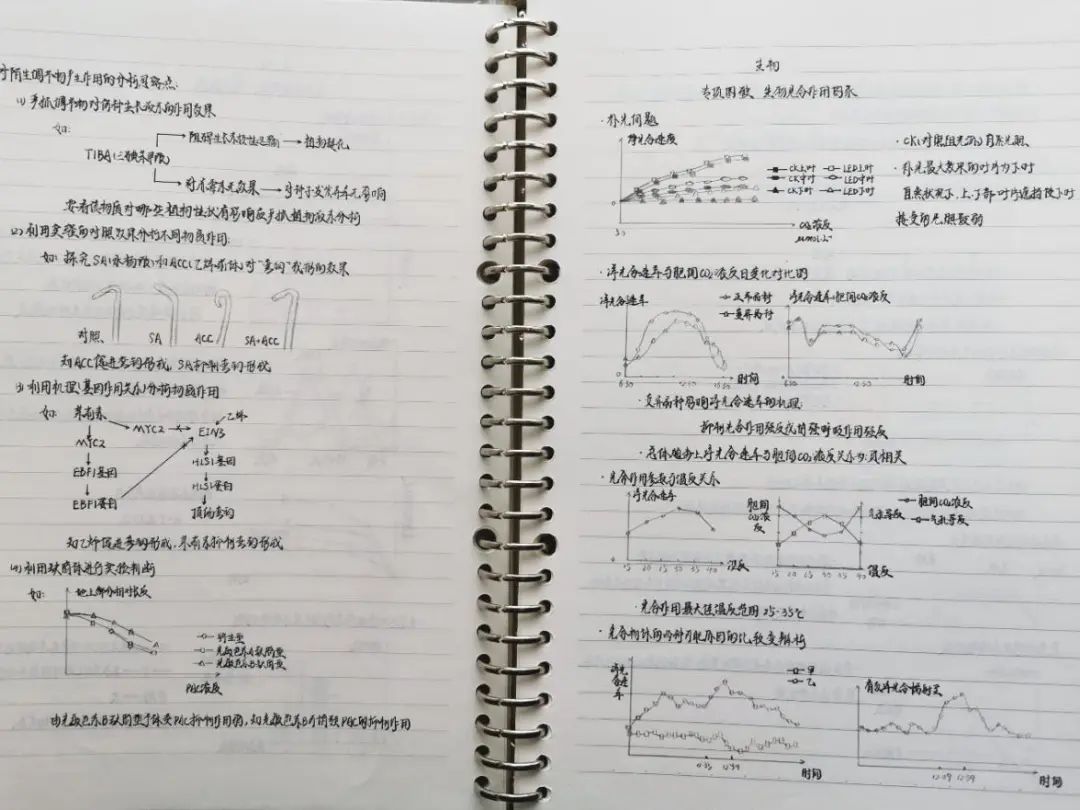 对陌生调节物产生作用的分析思路点:
(1) 多抓调节物对何种生长激素的作用效果
如:
TIBA(三碘苯甲酸)
阻碍生长素极性运输 → 植物矮化
对赤霉素无效果 → 对种子发芽率无影响
要看该物质对哪些植物性状有影响
(2) 利用实验的对照效果分析不同物质作用:
如: 探究SA(水杨酸)和ACC(乙烯前体)对"弯钩"形成的效果
对照、 SA ACC SA+ACC
知ACC促进弯钩形成, SA抑制弯钩形成
(3) 利用机理(基因作用关系)分析物质作用
如: 茉莉素 乙烯
MYC2 EIN3
MYC2
EBF1基因 HLS1基因
EBF1蛋白 HLS1蛋白
顶端弯钩
知乙烯促进弯钩形成, 茉莉素抑制弯钩形成
(4) 利用缺陷体进行实验判断
如: 地上部分相对长度
野生型
光敏色素A缺陷型
光敏色素B缺陷型
PAC浓度
由光敏色素B缺陷型个体受PAC抑制作用弱, 知光敏色素B介导PAC的抑制作用
生物
专项图像、生物光合作用因素
· 补光问题
净光合速度
CK上叶 LED上叶
CK中叶 LED中叶
CK下叶 LED下叶
CO₂浓度
· CK(对照组光源):自然光照、
· 补光最大效果的叶片为下叶
自然状况下, 上部叶片遮挡使下叶
接受的光照较弱
· 净光合速率与胞间CO₂浓度日变化对比图
净光合速率
净光合速率 胞间CO₂浓度
6:30 12:30 时间
6:30 12:30 时间
· 变异品种影响净光合速率的机理:
抑制光合作用强度或增强呼吸作用强度
· 总体趋势上净光合速率与胞间CO₂浓度关系为: 负相关
· 光合作用参数与温度关系
净光合速率
15 20 25 30 35 40 温度
胞间CO₂浓度
气孔导度
胞间CO₂浓度
气孔导度
15 20 25 30 35 40 温度
· 光合作用最大值温度范围 25-35℃
净光合速率
甲
乙
时间
有效净光合辐射
12:59
时间